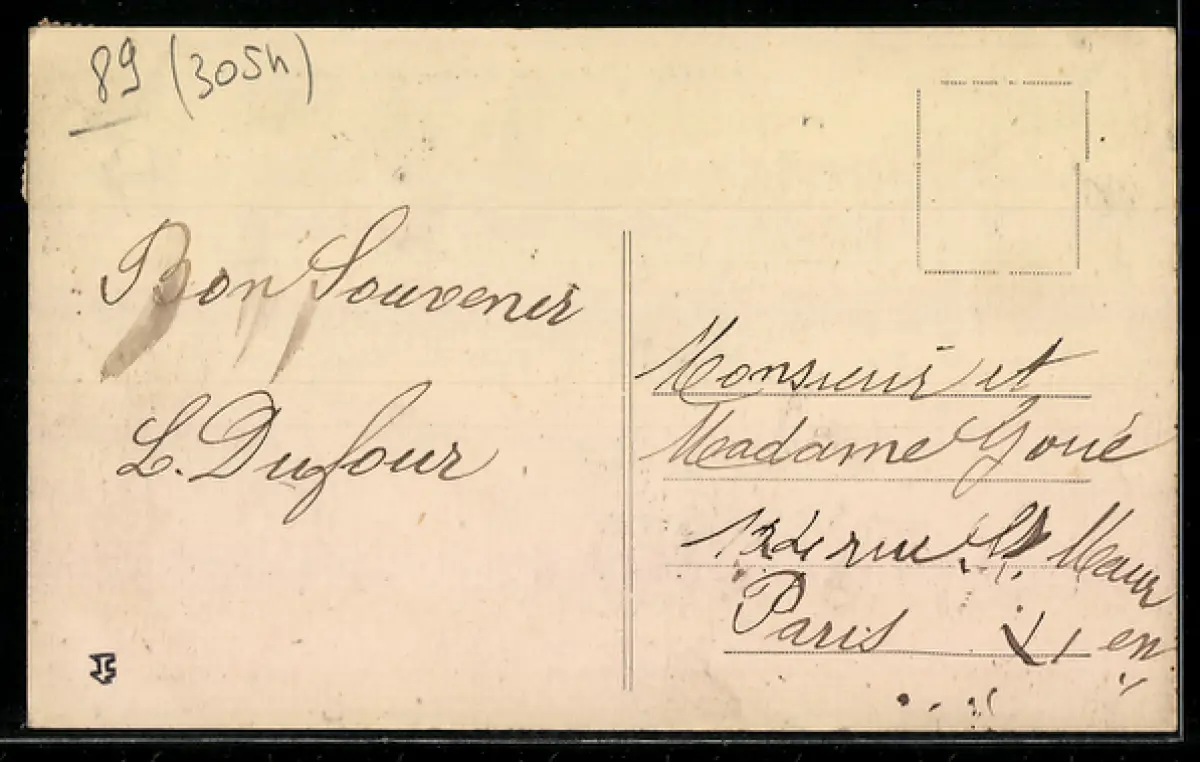 89 (305h)
Bon Souvenir
L. Dufour
Monsieur et
Madame Goué
124 rue St Maur
Paris XI en